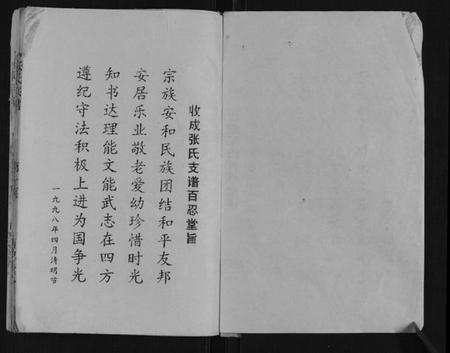 收成张氏支谱百忍堂旨
宗族安和民族团结和平友邦
安居乐业敬老爱幼珍惜时光
知书达理能文能武志在四方
遵纪守法积极上进为国争光
一九九八年四月清明节